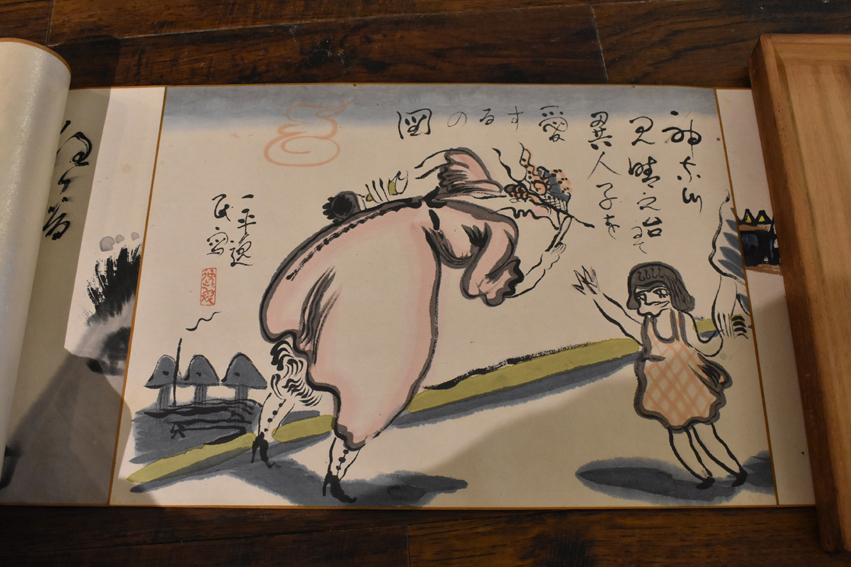 神奈川
見晴之台にて
異人子を
愛するの圖
一平逸
民寫